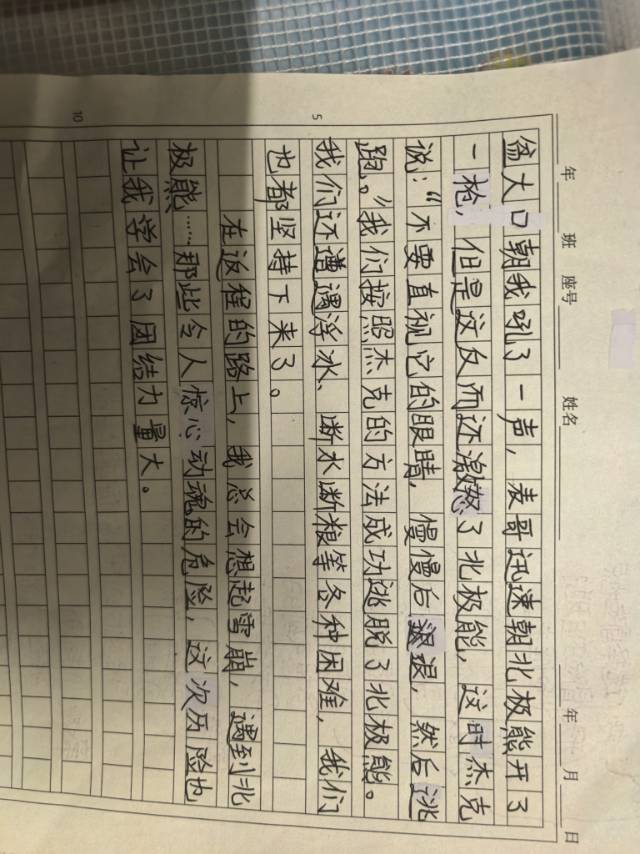 年 班 座号 姓名 年 月 日
盆大口朝我吼了一声，表哥迅速朝北极熊开了
一枪，但是这反而还激怒了北极能，这时杰克
说：“不要直视它的眼睛，慢慢后退，然后逃
跑。”我们按照杰克的方法成功逃脱了北极熊。
5
我们还遭遇浮水、断水断粮等各种困难，我们
也都坚持下来了。
在返程的路上，我总会想起雪崩，遇到北
极熊……那些令人惊心动魂的危险，这次历险也
让我学会了团结力量大。
10